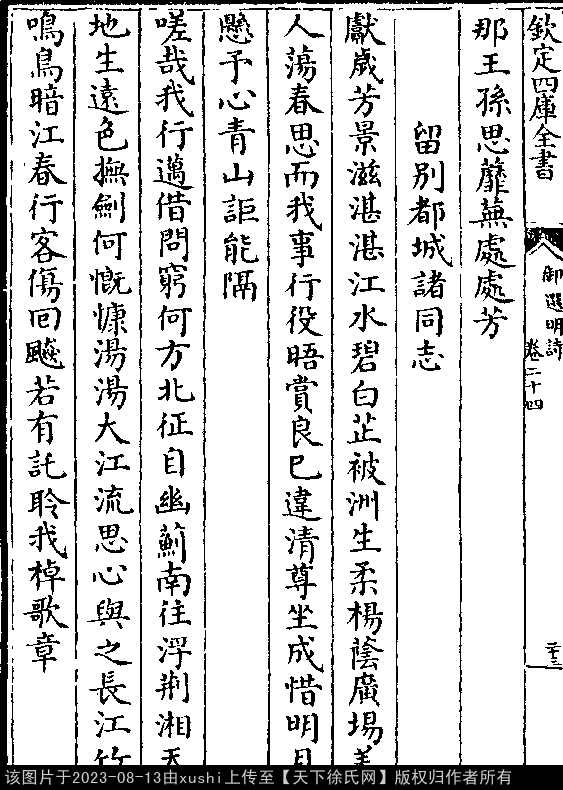 欽定四庫全書
御選明詩
卷二十四
二十三
那王孫思蘼蕪處處芳
留别都城諸同志
獻歲芳景滋湛湛江水碧白芷被洲生柔楊蔭廣場美
人蕩春思而我事行役晤賞良已違清尊坐成惜明月
懸予心青山詎能隔
嗟哉我行邁借問窮何方北征自幽薊南往浮荆湘天
地生遠色撫劍何慨慷湯湯大江流思心與之長江竹
鳴鳥暗江春行客傷回飇若有託聆我棹歌章
该图片于2023-08-13由xushi上传至【天下徐氏网】版权归作者所有